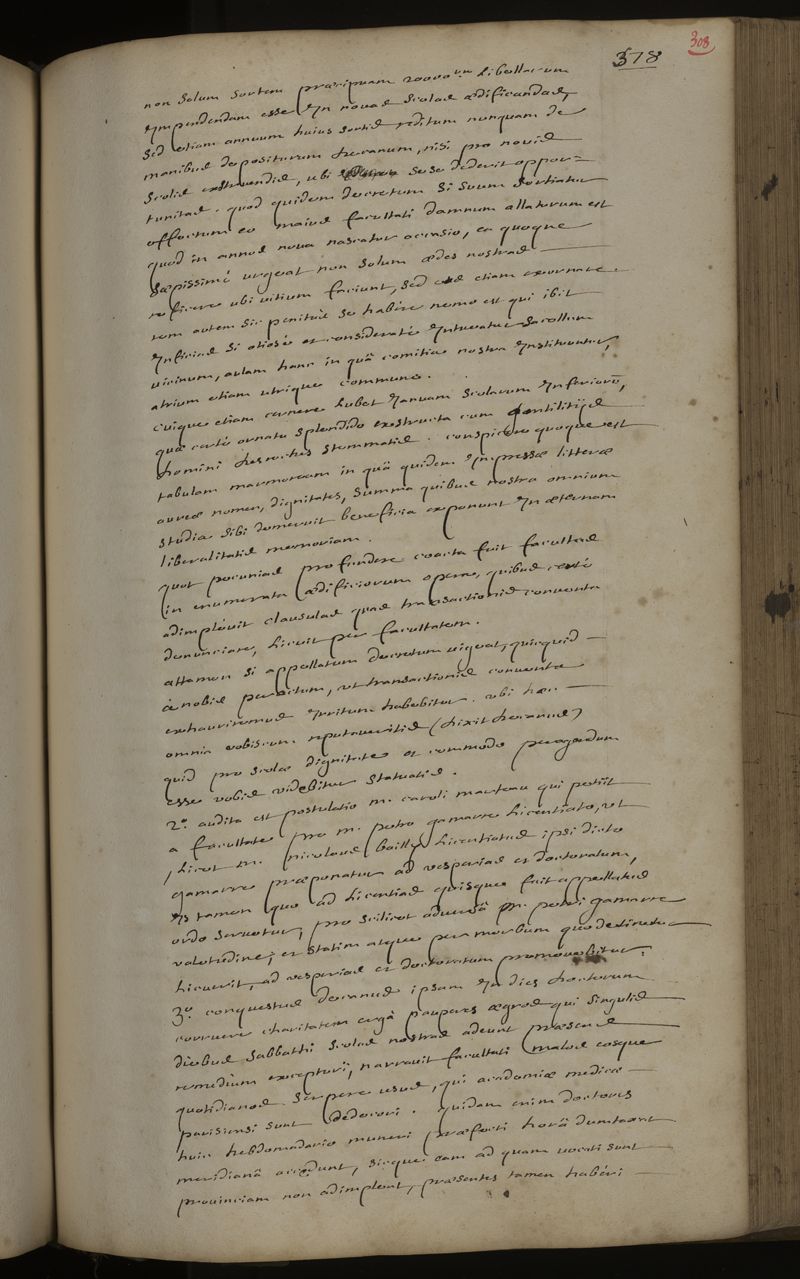 308
378
non solum sortem præcipuam 20000um libellarum
impendendam esse in novas scolas ædificandas,
sed etiam annuum huius sortis reditum nunquam de
manibus depositurum decanum, nisi pro novis
scolis exstruendis, ubi sese dederit oppor=
tunitas. quod quidem decretum si suum sortiatur
effectum eo maius facultati damnum allaturum est
quod in annos nova nascatur occasio, ea quoque
sæpissimè urgeat non solum ædes nostras
reficere ubi vitium faciunt, sed etiam exornare
rem autem sic penitùs se habere nemo est qui ibit
inficias si otiosè et consideratè intueatur sacellum
vicinum, aulam hanc in quâ comitia nostra instituuntur,
atrium etiam utrique commune.
cuique etiam cernere lubet ianuam scolarum inferiorū,
quæ certè ornatu splendido exstructa cum gentilitijs
domini desroches stemmatis. conspicere quoque est
tabulam marmoream in quâ quidem impressæ litteræ
aureæ nomen, dignitates, summa quibus nostra omnium
studia sibi demeruit beneficia exponunt in æternam
liberalitatis memoriam.
quot pecunias profundere coacta fuit facultas
in enumerata ædificiorum opera, quibus certè
adimplevit clausulas quas transactionis conventa
denunciare, licuit per facultatem.
attamen si appellatum decretum vigeat, quicquid
à nobis peractum, ut transactionis conventa
exhauriremus irritum habebitur. ubi hæc
omnia vobiscum reputaveritis (dixit decanus)
quid pro scolæ dignitate et commodo peragendum
esse vobis videbitur statuatis.
2º. audita est postulatio m. caroli marteau qui petiit
a facultate pro m. petro gamarre licentiato, ut
, licet m. nicolaus bailly licentiatus ipsi dicto
gamarre præponatur ad vesperias et doctoratum,
is tamen quo ad licentias quisque fuit appellatus
ordo servetur, pro scilicet adversâ m. petri gamarre
valetudine; et statim atque per morbum quo detinetur
licuerit, ad vesperias et doctoratum promovebitur.
3º. conquestus decanus ipsam in dies doctorum
corruere charitatem ergà pauperes ægros qui singulis
diebus sabbathi scolas nostras adeunt præsens
remedium excepturi, narravit facultati malos eosque
quotidianos serpere usus, qui academiæ medicæ
parisiensi sunt dedecori. quidam enim doctores
huic hebdomadario muneri præfecti horâ dumtaxat
meridianâ accedunt, sicque eam ad quam vocati sunt
provinciam non adimplent, præsentes tamen haberi